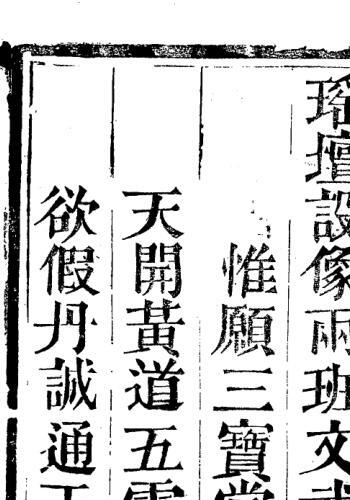 瑤壇設像兩班文武
惟願三寶
天開黃道五雲
欲假丹誠通